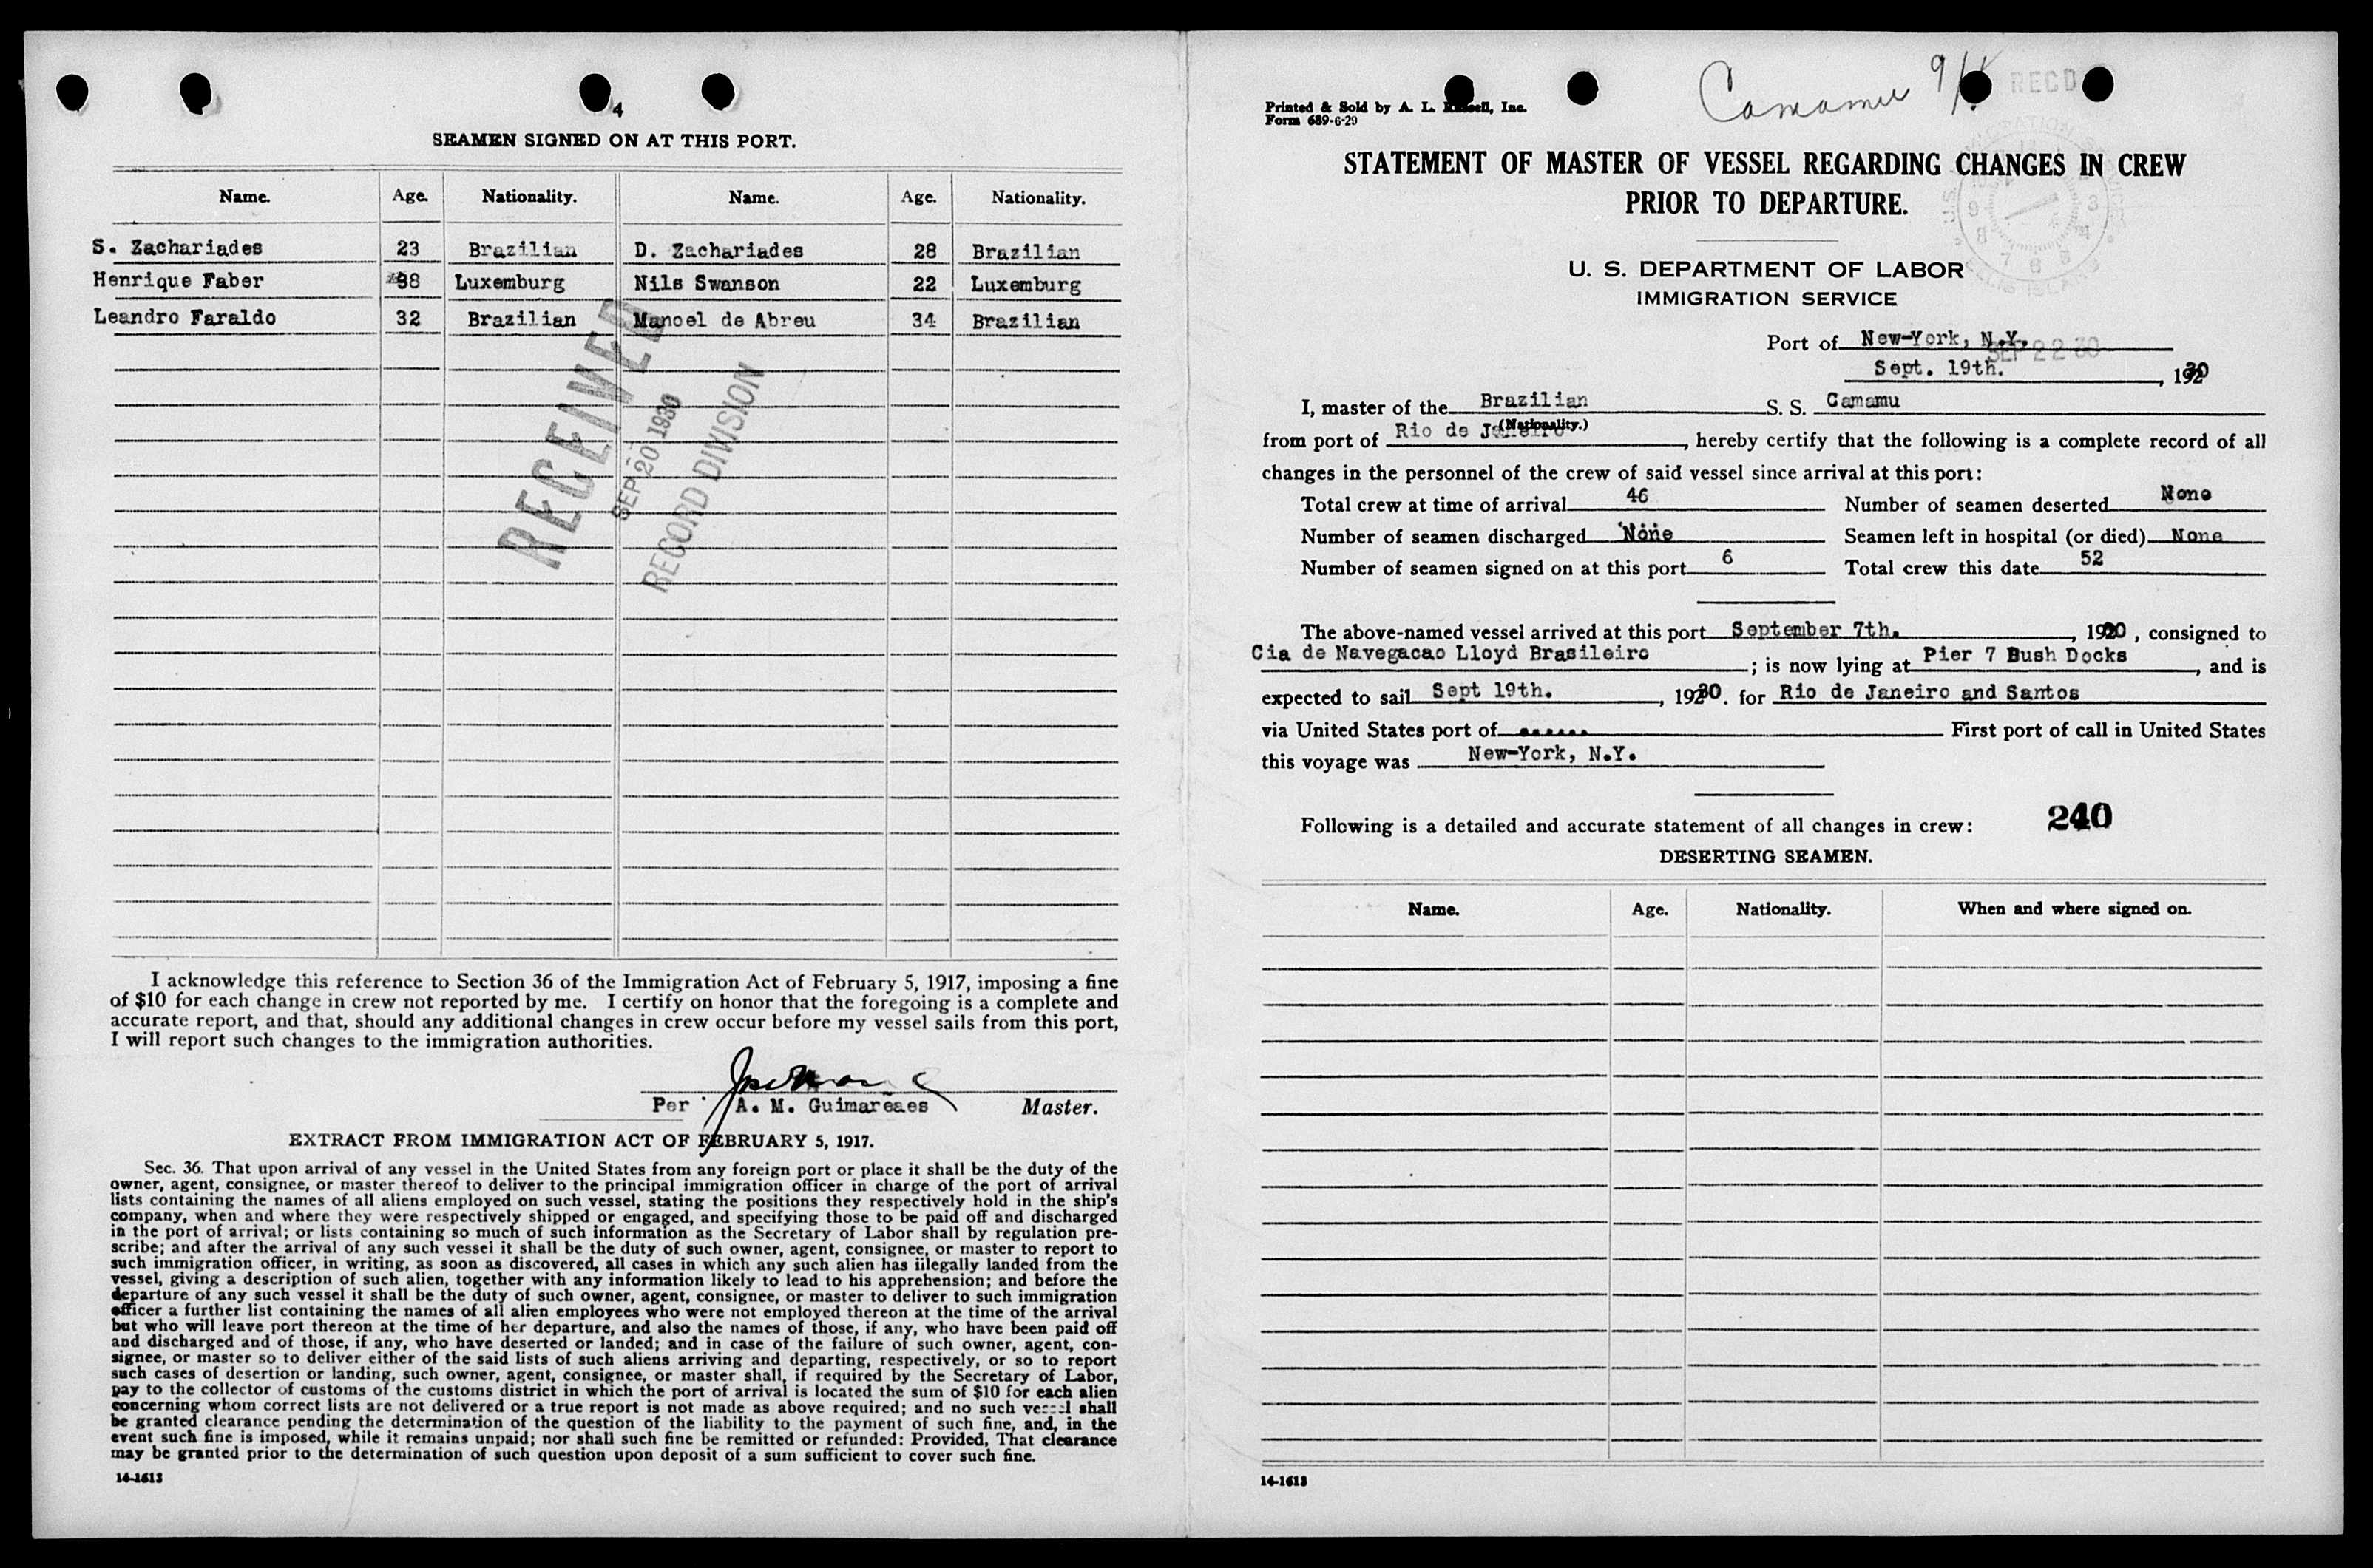 4
SEAMEN SIGNED ON AT THIS PORT.
Name. Age. Nationality. Name. Age. Nationality.
S. Zachariades 23 Brazilian D. Zachariades 28 Brazilian
Henrique Faber 38 Luxemburg Nils Swanson 22 Luxemburg
Leandro Faraldo 32 Brazilian Manoel de Abreu 34 Brazilian
RECEIVED
SEP 20 1930
RECORD DIVISION
I acknowledge this reference to Section 36 of the Immigration Act of February 5, 1917, imposing a fine
of $10 for each change in crew not reported by me. I certify on honor that the foregoing is a complete and
accurate report, and that, should any additional changes in crew occur before my vessel sails from this port,
I will report such changes to the immigration authorities.
Per A. M. Guimareaes Master.
EXTRACT FROM IMMIGRATION ACT OF FEBRUARY 5, 1917.
Sec. 36. That upon arrival of any vessel in the United States from any foreign port or place it shall be the duty of the
owner, agent, consignee, or master thereof to deliver to the principal immigration officer in charge of the port of arrival
lists containing the names of all aliens employed on such vessel, stating the positions they respectively hold in the ship's
company, when and where they were respectively shipped or engaged, and specifying those to be paid off and discharged
in the port of arrival; or lists containing so much of such information as the Secretary of Labor shall by regulation pre-
scribe; and after the arrival of any such vessel it shall be the duty of such owner, agent, consignee, or master to report to
such immigration officer, in writing, as soon as discovered, all cases in which any such alien has illegally landed from the
vessel, giving a description of such alien, together with any information likely to lead to his apprehension; and before the
departure of any such vessel it shall be the duty of such owner, agent, consignee, or master to deliver to such immigration
officer a further list containing the names of all alien employees who were not employed thereon at the time of the arrival
but who will leave port thereon at the time of her departure, and also the names of those, if any, who have been paid off
and discharged and of those, if any, who have deserted or landed; and in case of the failure of such owner, agent, con-
signee, or master so to deliver either of the said lists of such aliens arriving and departing, respectively, or so to report
such cases of desertion or landing, such owner, agent, consignee, or master shall, if required by the Secretary of Labor,
pay to the collector of customs of the customs district in which the port of arrival is located the sum of $10 for each alien
concerning whom correct lists are not delivered or a true report is not made as above required; and no such vessel shall
be granted clearance pending the determination of the question of the liability to the payment of such fine, and, in the
event such fine is imposed, while it remains unpaid; nor shall such fine be remitted or refunded: Provided, That clearance
may be granted prior to the determination of such question upon deposit of a sum sufficient to cover such fine.
14-1613
Camamu 9/
REC'D
Printed & Sold by A. L. Russell, Inc.
Form 689-6-29
STATEMENT OF MASTER OF VESSEL REGARDING CHANGES IN CREW
PRIOR TO DEPARTURE.
U. S. DEPARTMENT OF LABOR
IMMIGRATION SERVICE
Port of New-York, N.Y.
SEP 22 30
Sept. 19th. , 1930
I, master of the Brazilian S. S. Camamu
(Nationality.)
from port of Rio de Janeiro , hereby certify that the following is a complete record of all
changes in the personnel of the crew of said vessel since arrival at this port:
Total crew at time of arrival 46 Number of seamen deserted None
Number of seamen discharged None Seamen left in hospital (or died) None
Number of seamen signed on at this port 6 Total crew this date 52
The above-named vessel arrived at this port September 7th. , 1930 , consigned to
Cia de Navegacao Lloyd Brasileiro ; is now lying at Pier 7 Bush Docks , and is
expected to sail Sept 19th. , 1930. for Rio de Janeiro and Santos
via United States port of ...... First port of call in United States
this voyage was New-York, N.Y.
Following is a detailed and accurate statement of all changes in crew: 240
DESERTING SEAMEN.
Name. Age. Nationality. When and where signed on.
14-1613